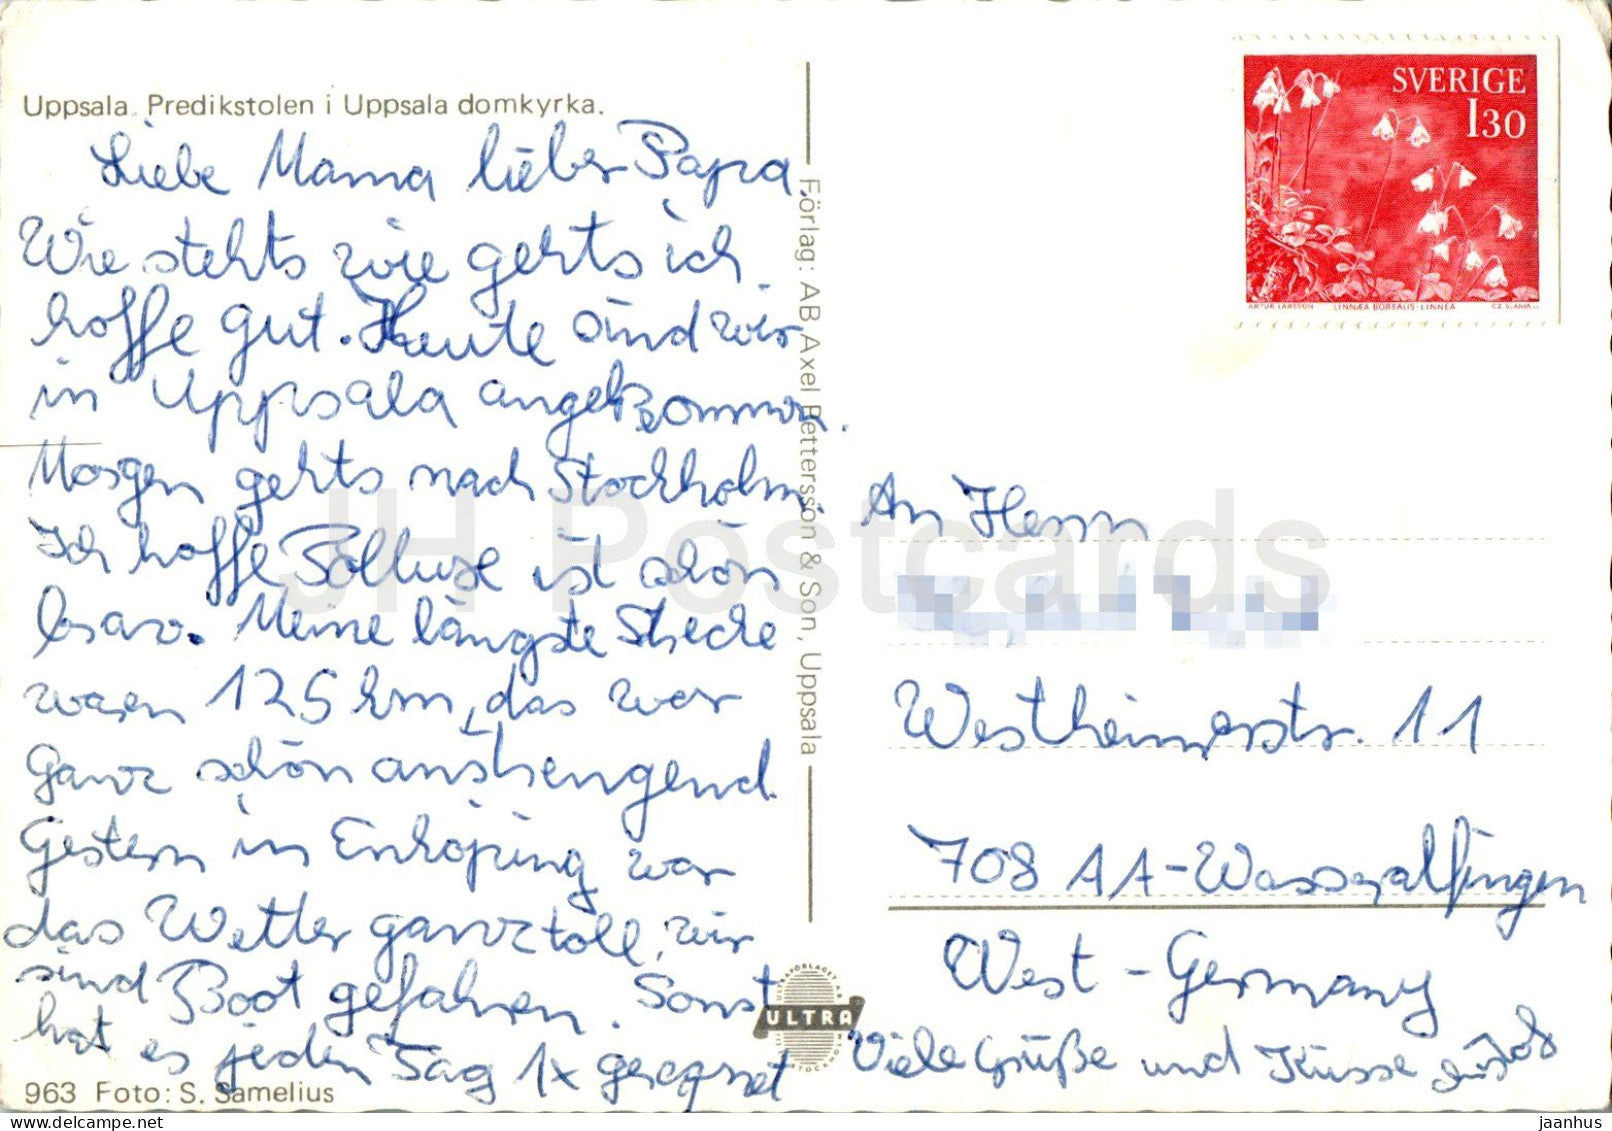 Uppsala. Predikstolen i Uppsala domkyrka.
Liebe Mama lieber Papa.
Wie stehts wie gehts ich
hoffe gut. Heute sind wir
in Uppsala angekommen.
Morgen gehts nach Stockholm,
Ich hoffe ist schön
brav. Meine längste Strecke
waren 125 km, das war
ganz schön anstrengend.
Gestern in Enköping war
das Wetter ganz toll, wir
sind Boot gefahren. Sonst
hat es jeden Tag 1x geregnet
963 Foto: S. Samelius
Förlag: AB Axel Pettersson & Son, Uppsala
ULTRA
SVERIGE
130
ARTUR LARSSON LINNÆA BOREALIS-LINNEA CZ SLANIA
An Herrn
Westheimerstr. 11
708 AA-Wasseralfingen
West-Germany
Viele Grüße und Küsse
JH Postcards
jaanhus